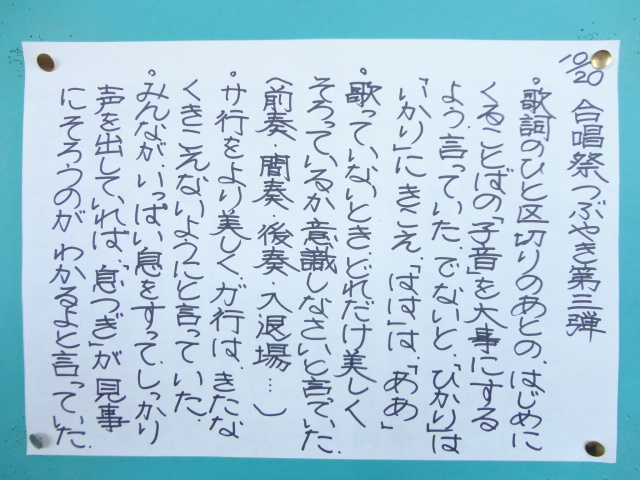 10/20 合唱祭つぶやき第三弾
・歌詞のひと区切りのあとの、はじめに
くることばの「子音」を大事にする
よう、言っていた。でないと、「ひかり」は
「いかり」にきこえ、「はは」は、「ああ」
・歌っていないとき、どれだけ美しく
そろっているか意識しなさいと言っていた.
(前奏・間奏・後奏・入退場…)
・サ行をより美しく、ガ行は、きたな
くきこえないようにと言っていた.
・みんなが、いっぱい息をすって、しっかり
声を出していれば、「息つぎ」が見事
にそろうのがわかるよと言っていた.